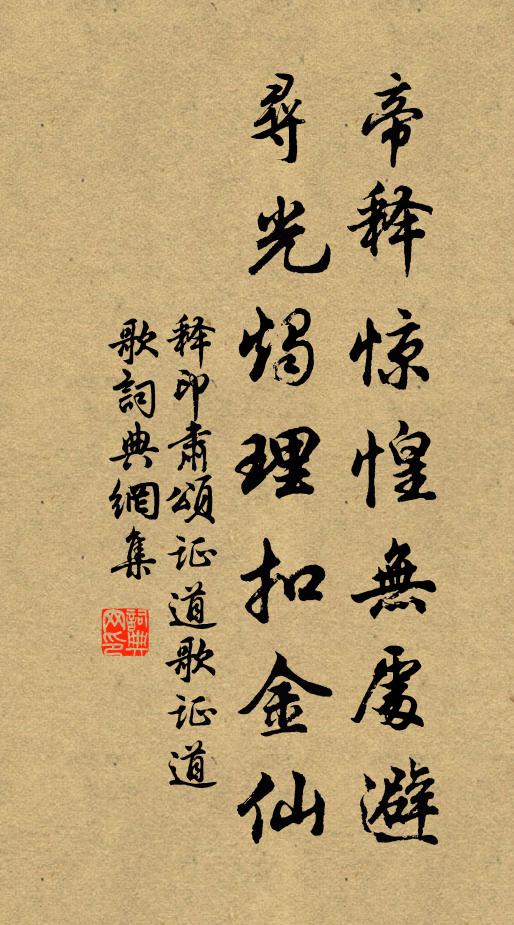 帝释惊惶無處避
尋光燭理扣金仙
释印肃頌证道歌证道
歌詞典網集
詞典
网印